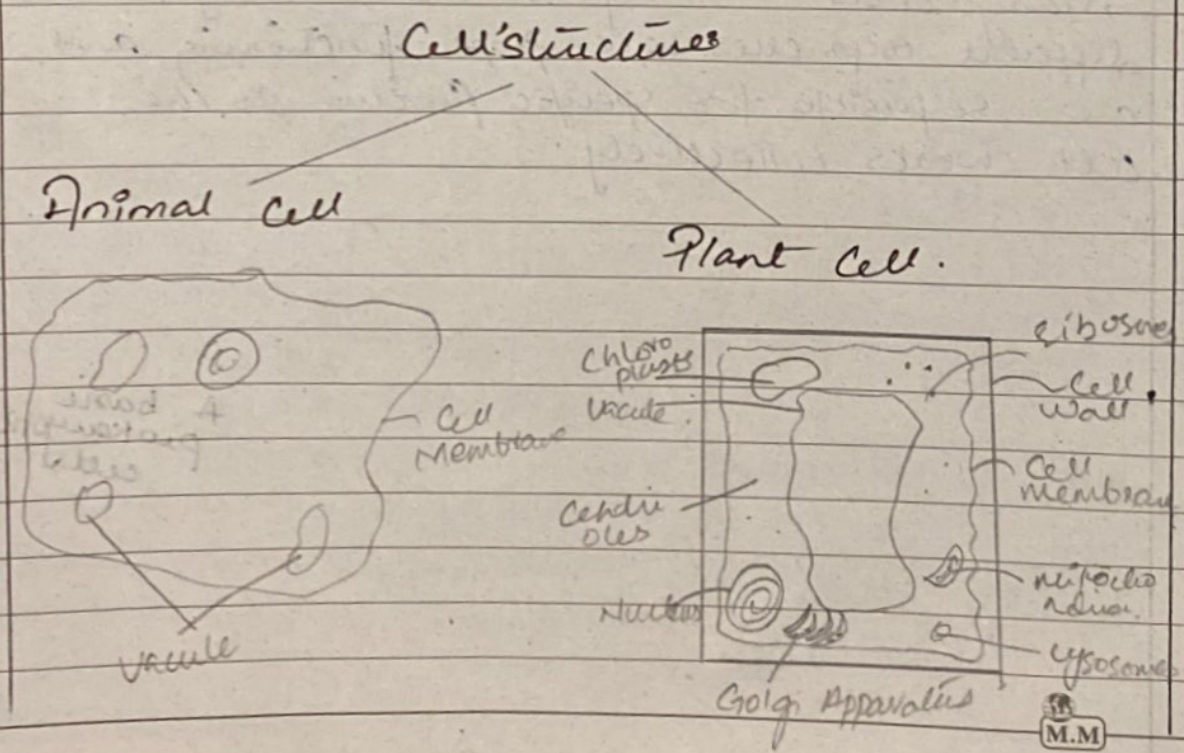 Cell's structures
Animal Cell
Plant Cell.
Cell
Membrane
Vacule
Chloro
plasts
Vacule
Nucleus
Golgi Apparatus
Ribosome
Cell
wall
Cell
membran
mitocho
ndria.
lysosomes
M.M